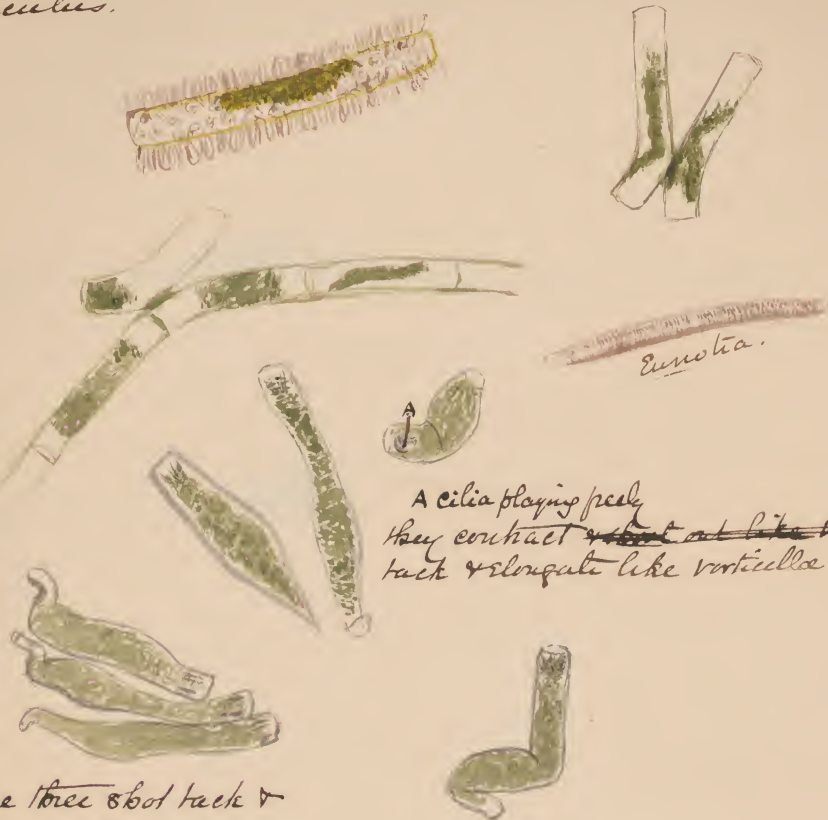 culus.
Eunotia.
A
A cilia playing freely
they contract & shoot out like
back & elongate like vorticellæ
e three shot back &